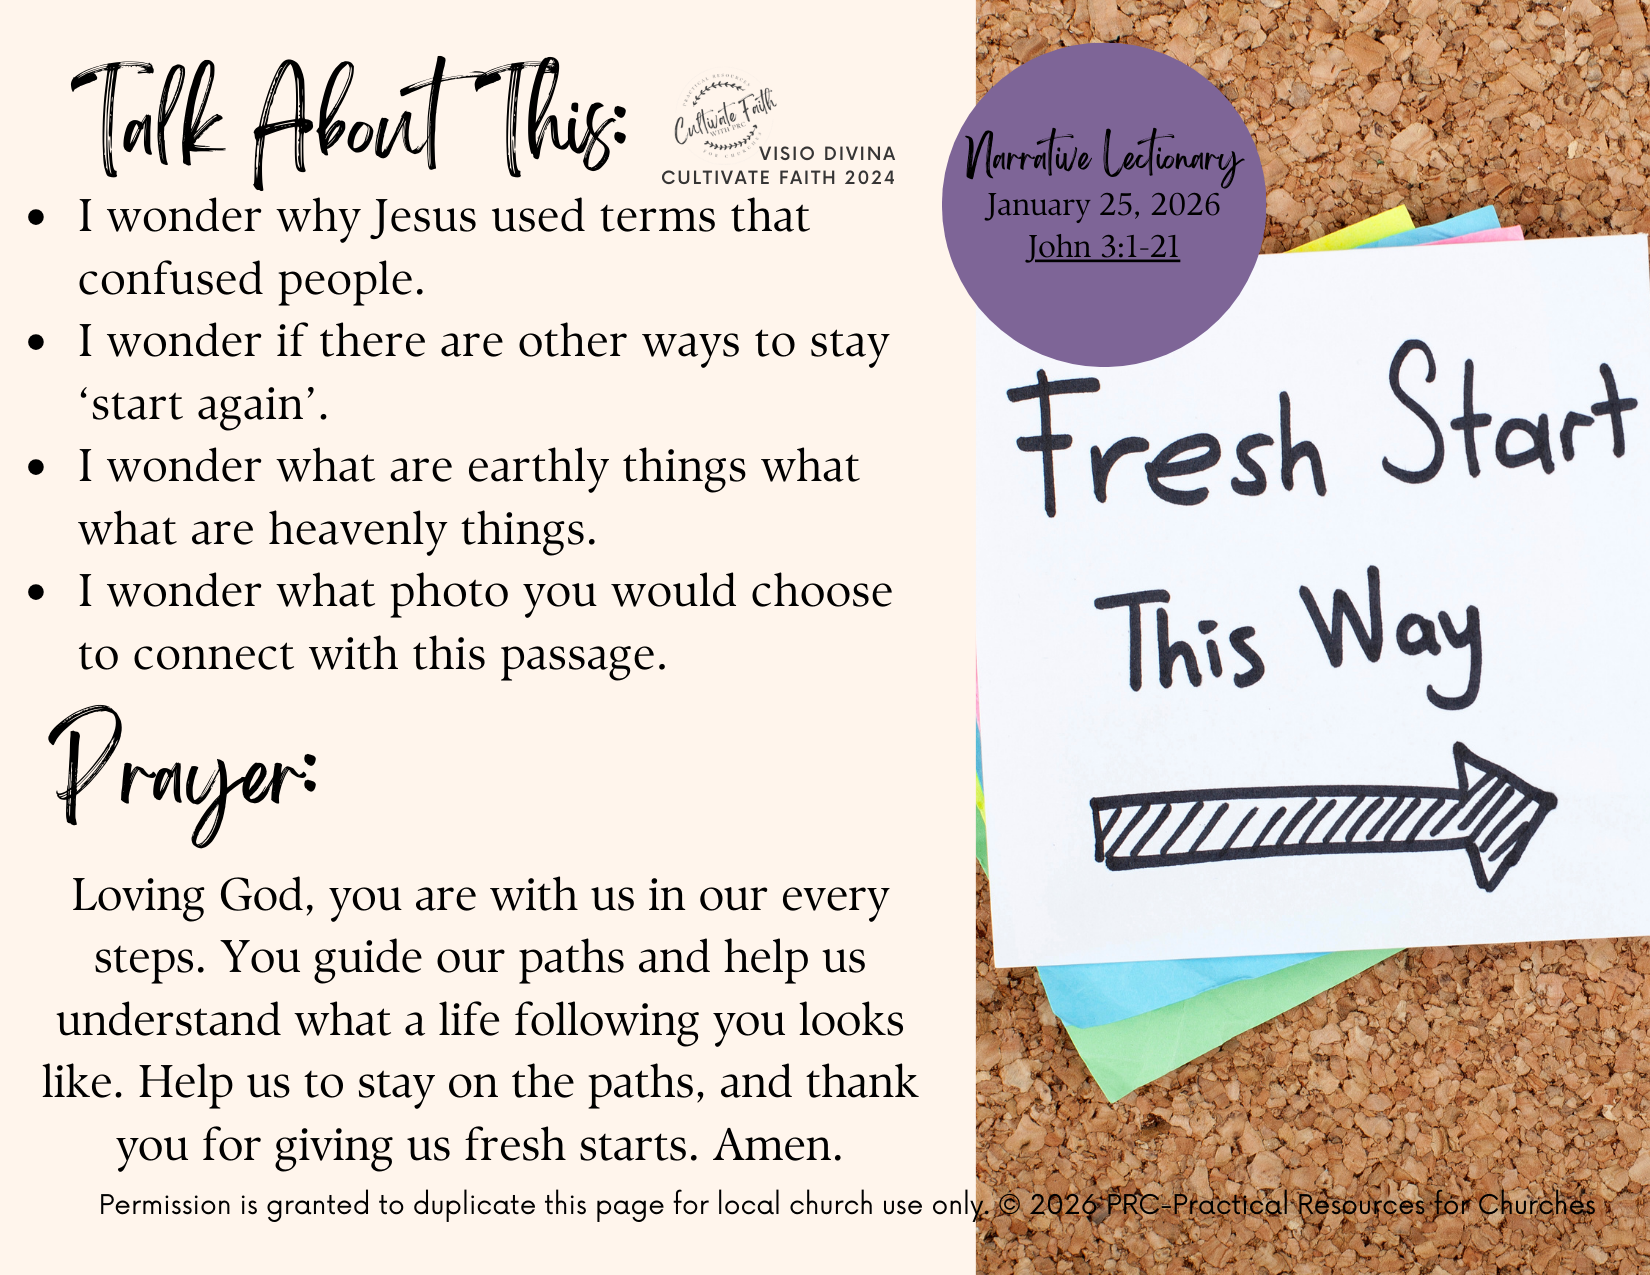 Talk About This:
PRACTICAL RESOURCES
Cultivate Faith
WITH PRC
FOR CHURCHES
VISIO DIVINA
CULTIVATE FAITH 2024
• I wonder why Jesus used terms that
confused people.
• I wonder if there are other ways to stay
‘start again’.
• I wonder what are earthly things what
what are heavenly things.
• I wonder what photo you would choose
to connect with this passage.
Prayer:
Loving God, you are with us in our every
steps. You guide our paths and help us
understand what a life following you looks
like. Help us to stay on the paths, and thank
you for giving us fresh starts. Amen.
Narrative Lectionary
January 25, 2026
John 3:1-21
Fresh Start
This Way
Permission is granted to duplicate this page for local church use only. © 2026 PRC-Practical Resources for Churches